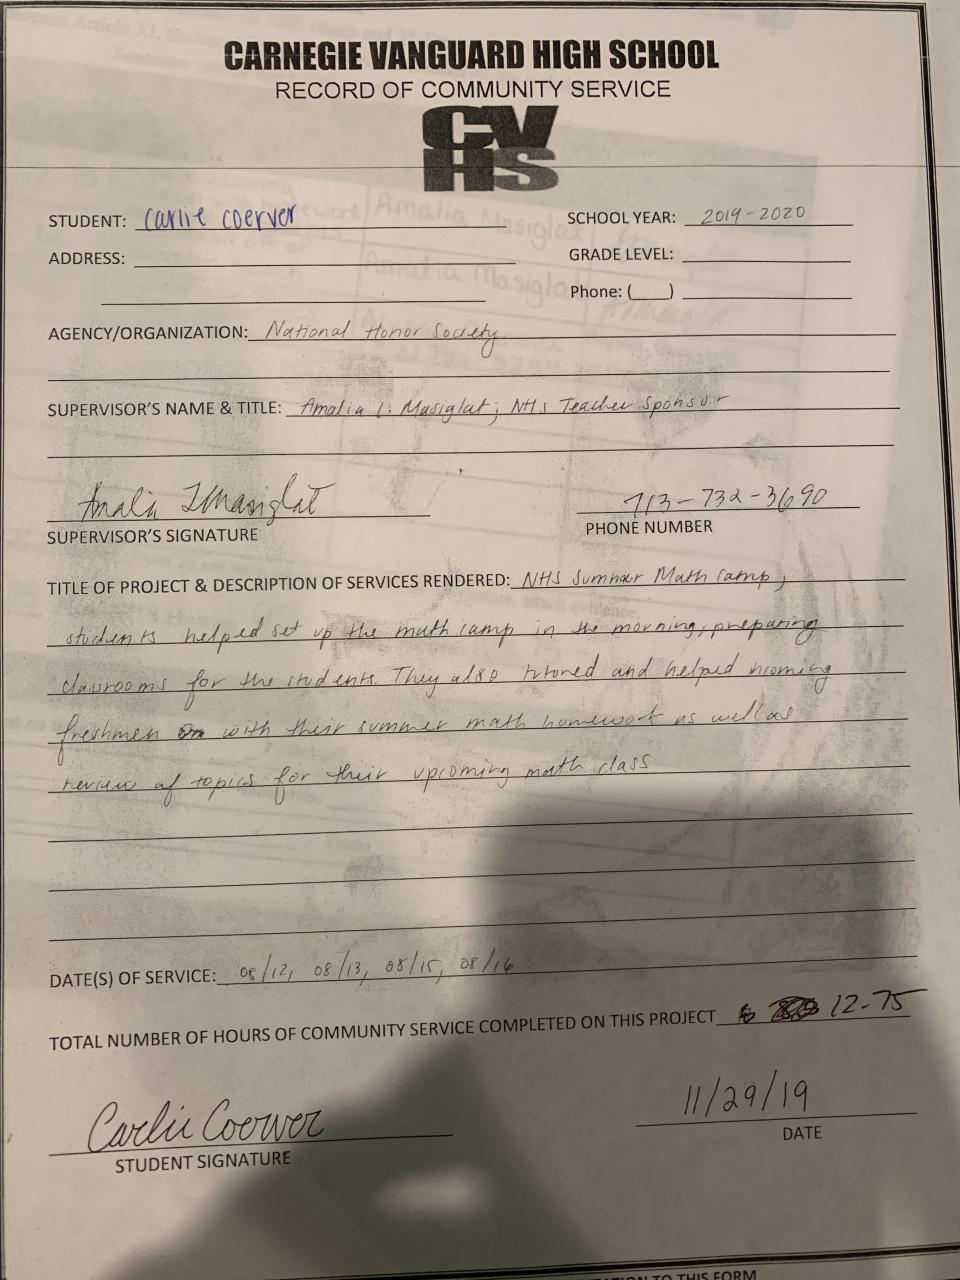 CARNEGIE VANGUARD HIGH SCHOOL
RECORD OF COMMUNITY SERVICE
CV
HS
STUDENT: Carlie Coerver SCHOOL YEAR: 2019-2020
ADDRESS: GRADE LEVEL:
Phone: (___)
AGENCY/ORGANIZATION: National Honor Society
SUPERVISOR'S NAME & TITLE: Amalia L. Masiglat; NHS Teacher Sponsor
Amalia LMasiglat 713-732-3690
SUPERVISOR'S SIGNATURE PHONE NUMBER
TITLE OF PROJECT & DESCRIPTION OF SERVICES RENDERED: NHS Summer Math Camp;
students helped set up the math camp in the morning, preparing
classrooms for the students. They also tutored and helped incoming
freshmen with their summer math homework as well as
review of topics for their upcoming math class
DATE(S) OF SERVICE: 08/12, 08/13, 08/15, 08/16
TOTAL NUMBER OF HOURS OF COMMUNITY SERVICE COMPLETED ON THIS PROJECT 12.75
Carlie Coerver 11/29/19
STUDENT SIGNATURE DATE
TO THIS FORM